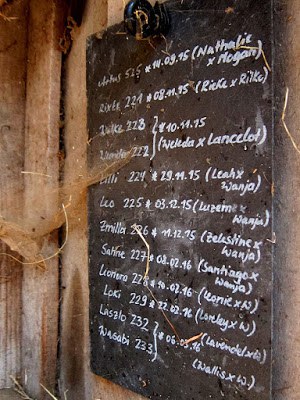 Artus 525 * 14.09.15 (Nathalie x Mogan)
Rixte 221 * 08.11.15 (Ricke x Rilke)
223 } * 10.11.15
222 } (Weleda x Lancelot)
Lilli 224 * 29.11.15 (Leah x Wanja)
Leo 225 * 03.12.15 (Luzerne x Wanja)
Zmilla 226 * 11.12.15 (Zelestine x Wanja)
Satine 227 * 08.02.16 (Santiago x Wanja)
Leonora 228 * 10.02.16 (Leonie x W)
Loki 229 * 22.02.16 (Loreley x W)
László 232 } (Lavendel x W)
Wasabi 233 } * 06.03.16 (Wallis x W.)